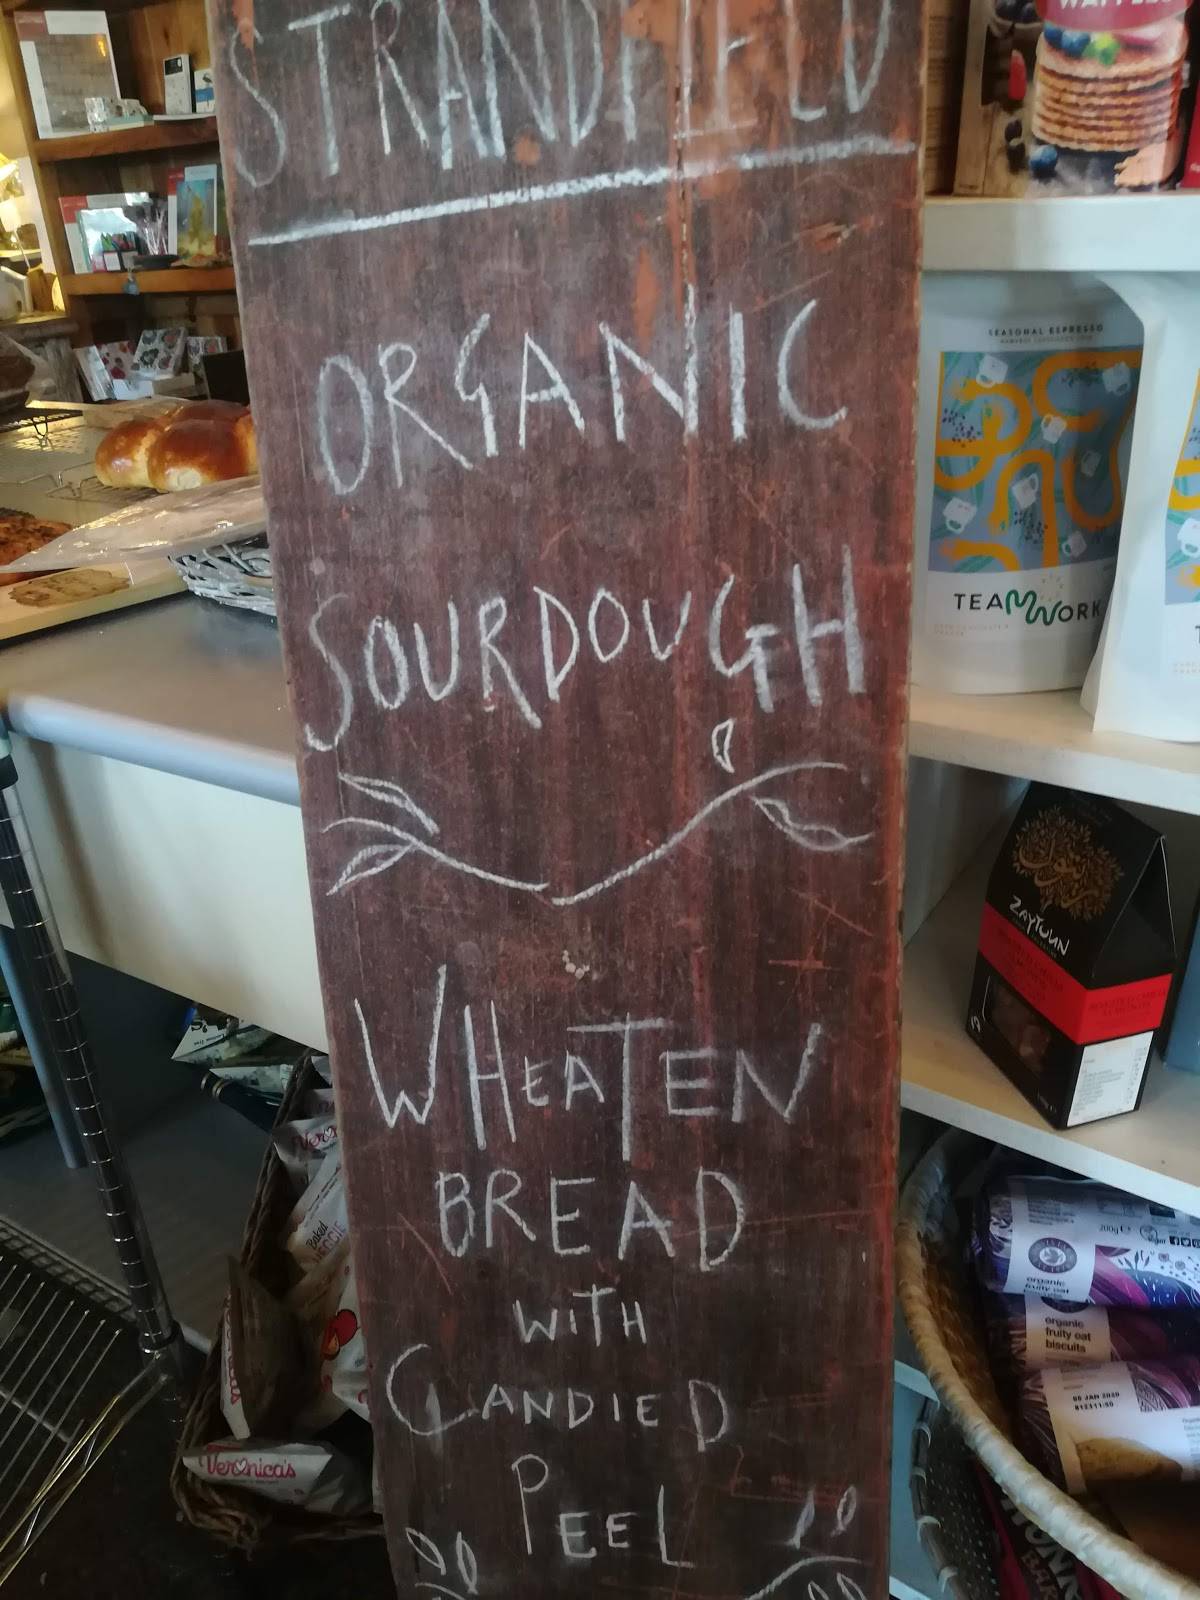 STRANDFIELD
ORGANIC
SOURDOUGH
WHEATEN
BREAD
WITH
CANDIED
PEEL
WAFFLES
SEASONAL ESPRESSO
TEAMWORK
ZAYTOUN
200g e
organic
fruity oat
organic
fruity oat
biscuits
05 JAN 2020
Baked
VEGGIE
Veronica's